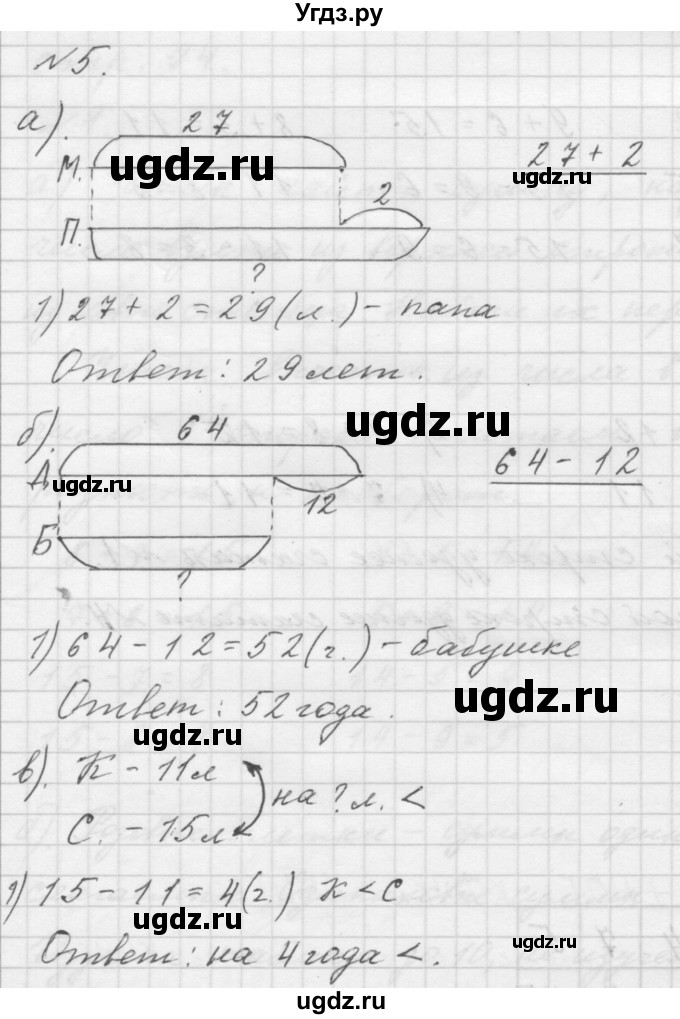 Угдз.ру
№5.
а).
27
М.
ugdz.ru
27+2
ugdz.ru
2
П.
ugdz.ru
?
1) 27+2=29(л.)- папа
Ответ: 29 лет.
ugdz.ru
б).
64
Д.
ugdz.ru
12
64-12
Б
?
1) 64-12=52(г.)-бабушке
Ответ: 52 года.
ugdz.ru
ugdz.ru
в). К - 11л
на ? л. <
С. - 15л
ugdz.ru
1) 15-11=4(г.) К<С
ugdz.ru
Ответ: на 4 года <.
ugdz.ru
ugdz.ru